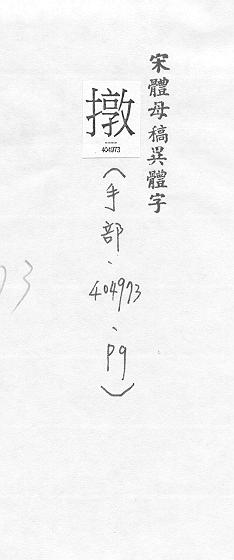 宋體母稿異體字
撴
404973
(手部、404973、P9)
73